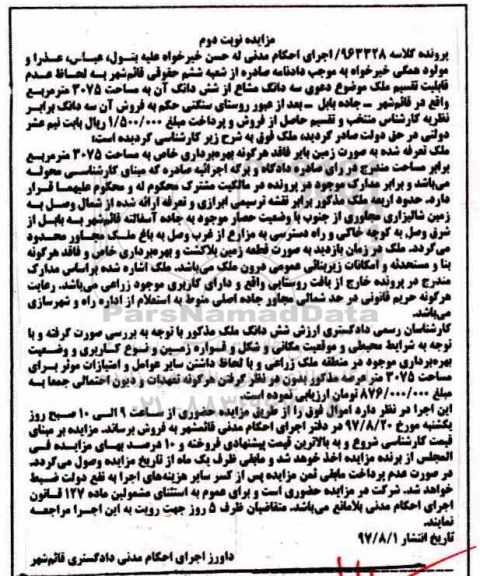 مزایده نوبت دوم
پرونده کلاسه ۹۶۳۳۲۸/ اجرای احکام مدنی له حسن خیرخواه علیه بتول، عباس، عذرا و
مولود همگی خیرخواه به موجب دادنامه صادره از شعبه ششم حقوقی قائم‌شهر به لحاظ عدم
قابلیت تقسیم ملک موضوع دعوی سه دانگ مشاع از شش دانگ آن به مساحت ۳۰۷۵ مترمربع
واقع در قائم‌شهر ـ جاده بابل ـ بعد از عبور روستای سنگتی حکم به فروش آن سه دانگ برابر
نظریه کارشناس منتخب و تقسیم حاصل از فروش و پرداخت مبلغ ۱/۵۰۰/۰۰۰ ریال بابت نیم عشر
دولتی در حق دولت صادر گردید، ملک فوق به شرح زیر کارشناسی گردیده است:
ملک تعرفه شده به صورت زمین بایر فاقد هرگونه بهره‌برداری خاص به مساحت ۳۰۷۵ مترمربع
برابر مساحت مندرج در رای صادره دادگاه و برگه اجرائیه صادره که مبنای کارشناسی محوله
می‌باشد و برابر مدارک موجود در پرونده در مالکیت مشترک محکوم له و محکوم علیهما قرار
دارد. حدود اربعه ملک مذکور برابر نقشه ترسیمی ابرازی و تعرفه ارائه شده از شمال وصل به
زمین شالیزاری مجاوری از جنوب با وضعیت حصار موجود به جاده آسفالته قائم‌شهر به بابل از
شرق وصل به کوچه خاکی و راه دسترسی به مزارع از غرب وصل به باغ ملک مجاور محدود
می‌گردد. ملک در زمان بازدید به صورت قطعه زمین بلاکشت و بهره‌برداری خاص و فاقد هرگونه
بنا و مستحدثه و امکانات زیربنائی عمومی درون ملک می‌باشد. ملک اشاره شده براساس مدارک
مندرج در پرونده خارج از بافت روستایی واقع و دارای کاربری موجود زراعی می‌باشد. رعایت
هرگونه حریم قانونی در حد شمالی مجاور جاده اصلی منوط به استعلام از اداره راه و شهرسازی
می‌باشد.
ParsNamadData
کارشناسان رسمی دادگستری ارزش شش دانگ ملک مذکور با توجه به بررسی صورت گرفته و با
توجه به شرایط محیطی و موقعیت مکانی و شکل و قواره زمین و نوع کاربری و وضعیت
بهره‌برداری موجود در منطقه ملک زراعی و با لحاظ داشتن سایر عوامل و امتیازات موثر برای
مساحت ۳۰۷۵ متر عرصه مذکور بدون در نظر گرفتن هرگونه تعهدات و دیون احتمالی جمعا به
مبلغ ۸۷۶/۰۰۰/۰۰۰ تومان ارزیابی نموده است.
این اجرا در نظر دارد اموال فوق را از طریق مزایده حضوری از ساعت ۹ الی ۱۰ صبح روز
یکشنبه مورخ ۹۷/۸/۲۰ در دفتر اجرای احکام مدنی قائمشهر به فروش برساند. مزایده بر مبنای
قیمت کارشناسی شروع و به بالاترین قیمت پیشنهادی فروخته و ۱۰ درصد بهای مزایده فی
المجلس از برنده مزایده اخذ خواهد شد و مابقی ظرف یک ماه از تاریخ مزایده وصول می‌گردد.
در صورت عدم پرداخت مابقی ثمن مزایده پس از کسر سایر هزینه‌های اجرا به نفع دولت ضبط
خواهد شد. شرکت در مزایده حضوری است و برای عموم به استثنای مشمولین ماده ۱۲۷ قانون
اجرای احکام مدنی بلامانع می‌باشد. متقاضیان ظرف ۵ روز جهت رویت به این اجرا مراجعه
نمایند.
تاریخ انتشار ۹۷/۸/۱
داورز اجرای احکام مدنی دادگستری قائم‌شهر